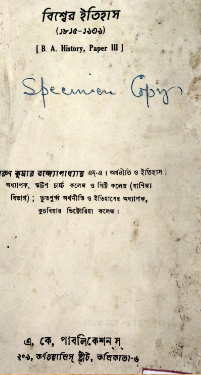 বিশ্বের ইতিহাস
(১৮১৫-১৯৩৯)
[ B. A. History, Paper III ]
Specimen Copy
কুমার বন্দ্যোপাধ্যায় এম-এ ( অর্থনীতি ও ইতিহাস )
অধ্যাপক, স্কটিশ চার্চ্চ কলেজ ও সিটি কলেজ (বাণিজ্য
বিভাগ) ; ভূতপূর্ব্ব অর্থনীতি ও ইতিহাসের অধ্যাপক,
কুচবিহার ভিক্টোরিয়া কলেজ।
এ, কে, পাবলিকেশন্‌স্
২০৯, কর্ণওয়ালিস্ ষ্ট্রীট, কলিকাতা-৬